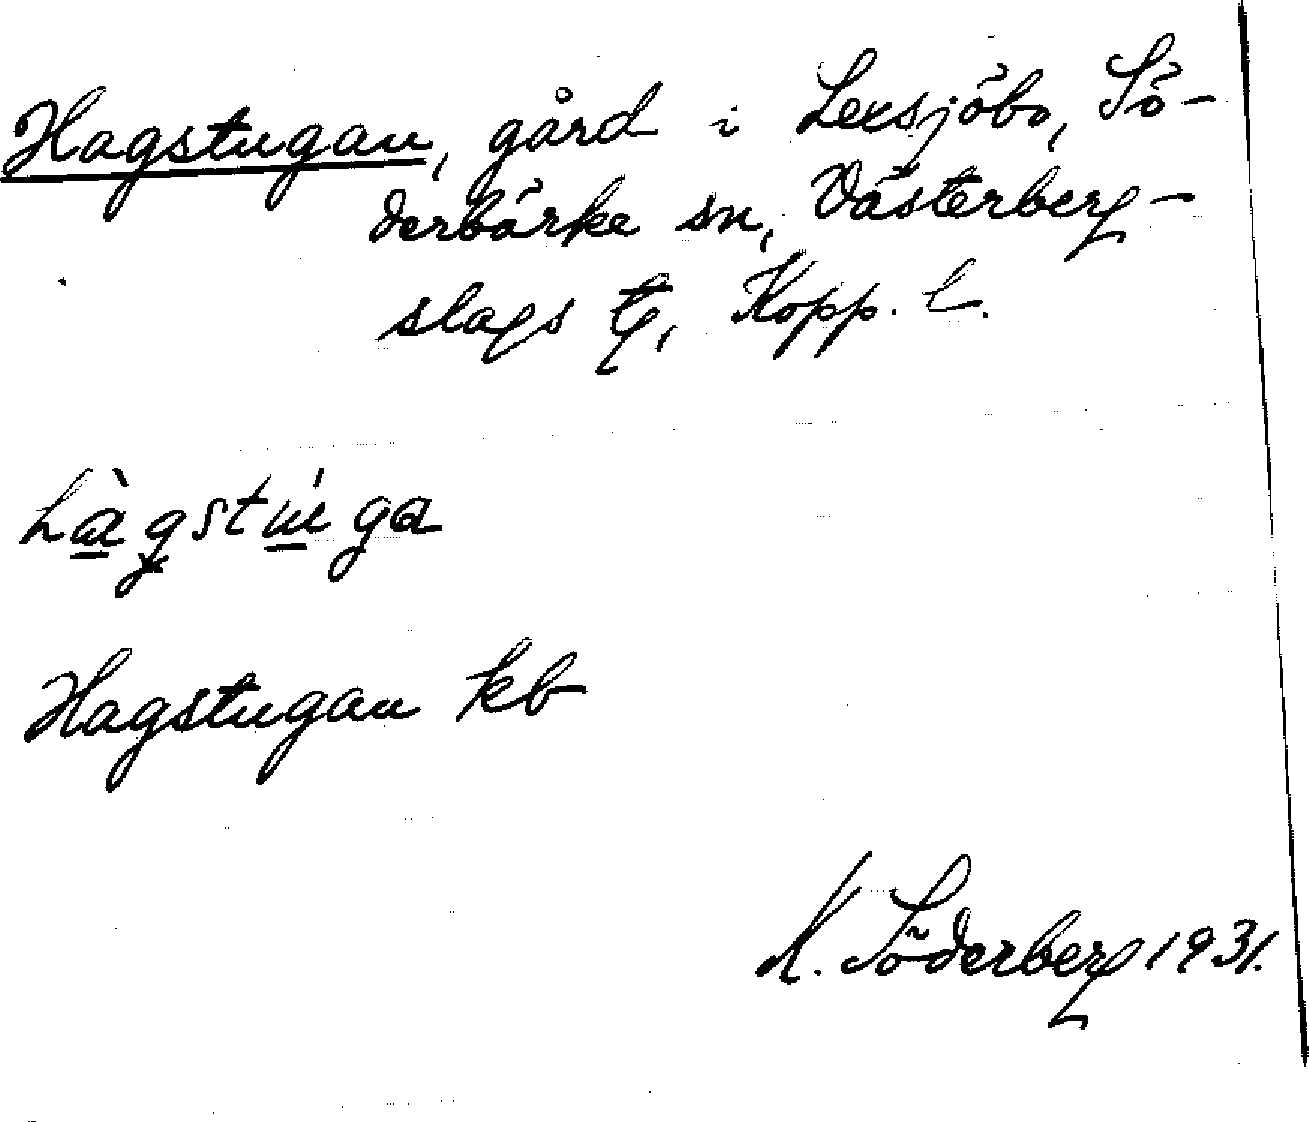 Hagstugan, gård i Lersjöbo, Sö-
derbärke sn, Västerberg-
slags tg, Kopp. l.
hàgstúga
Hagstugan kb
K. Söderberg 1931.